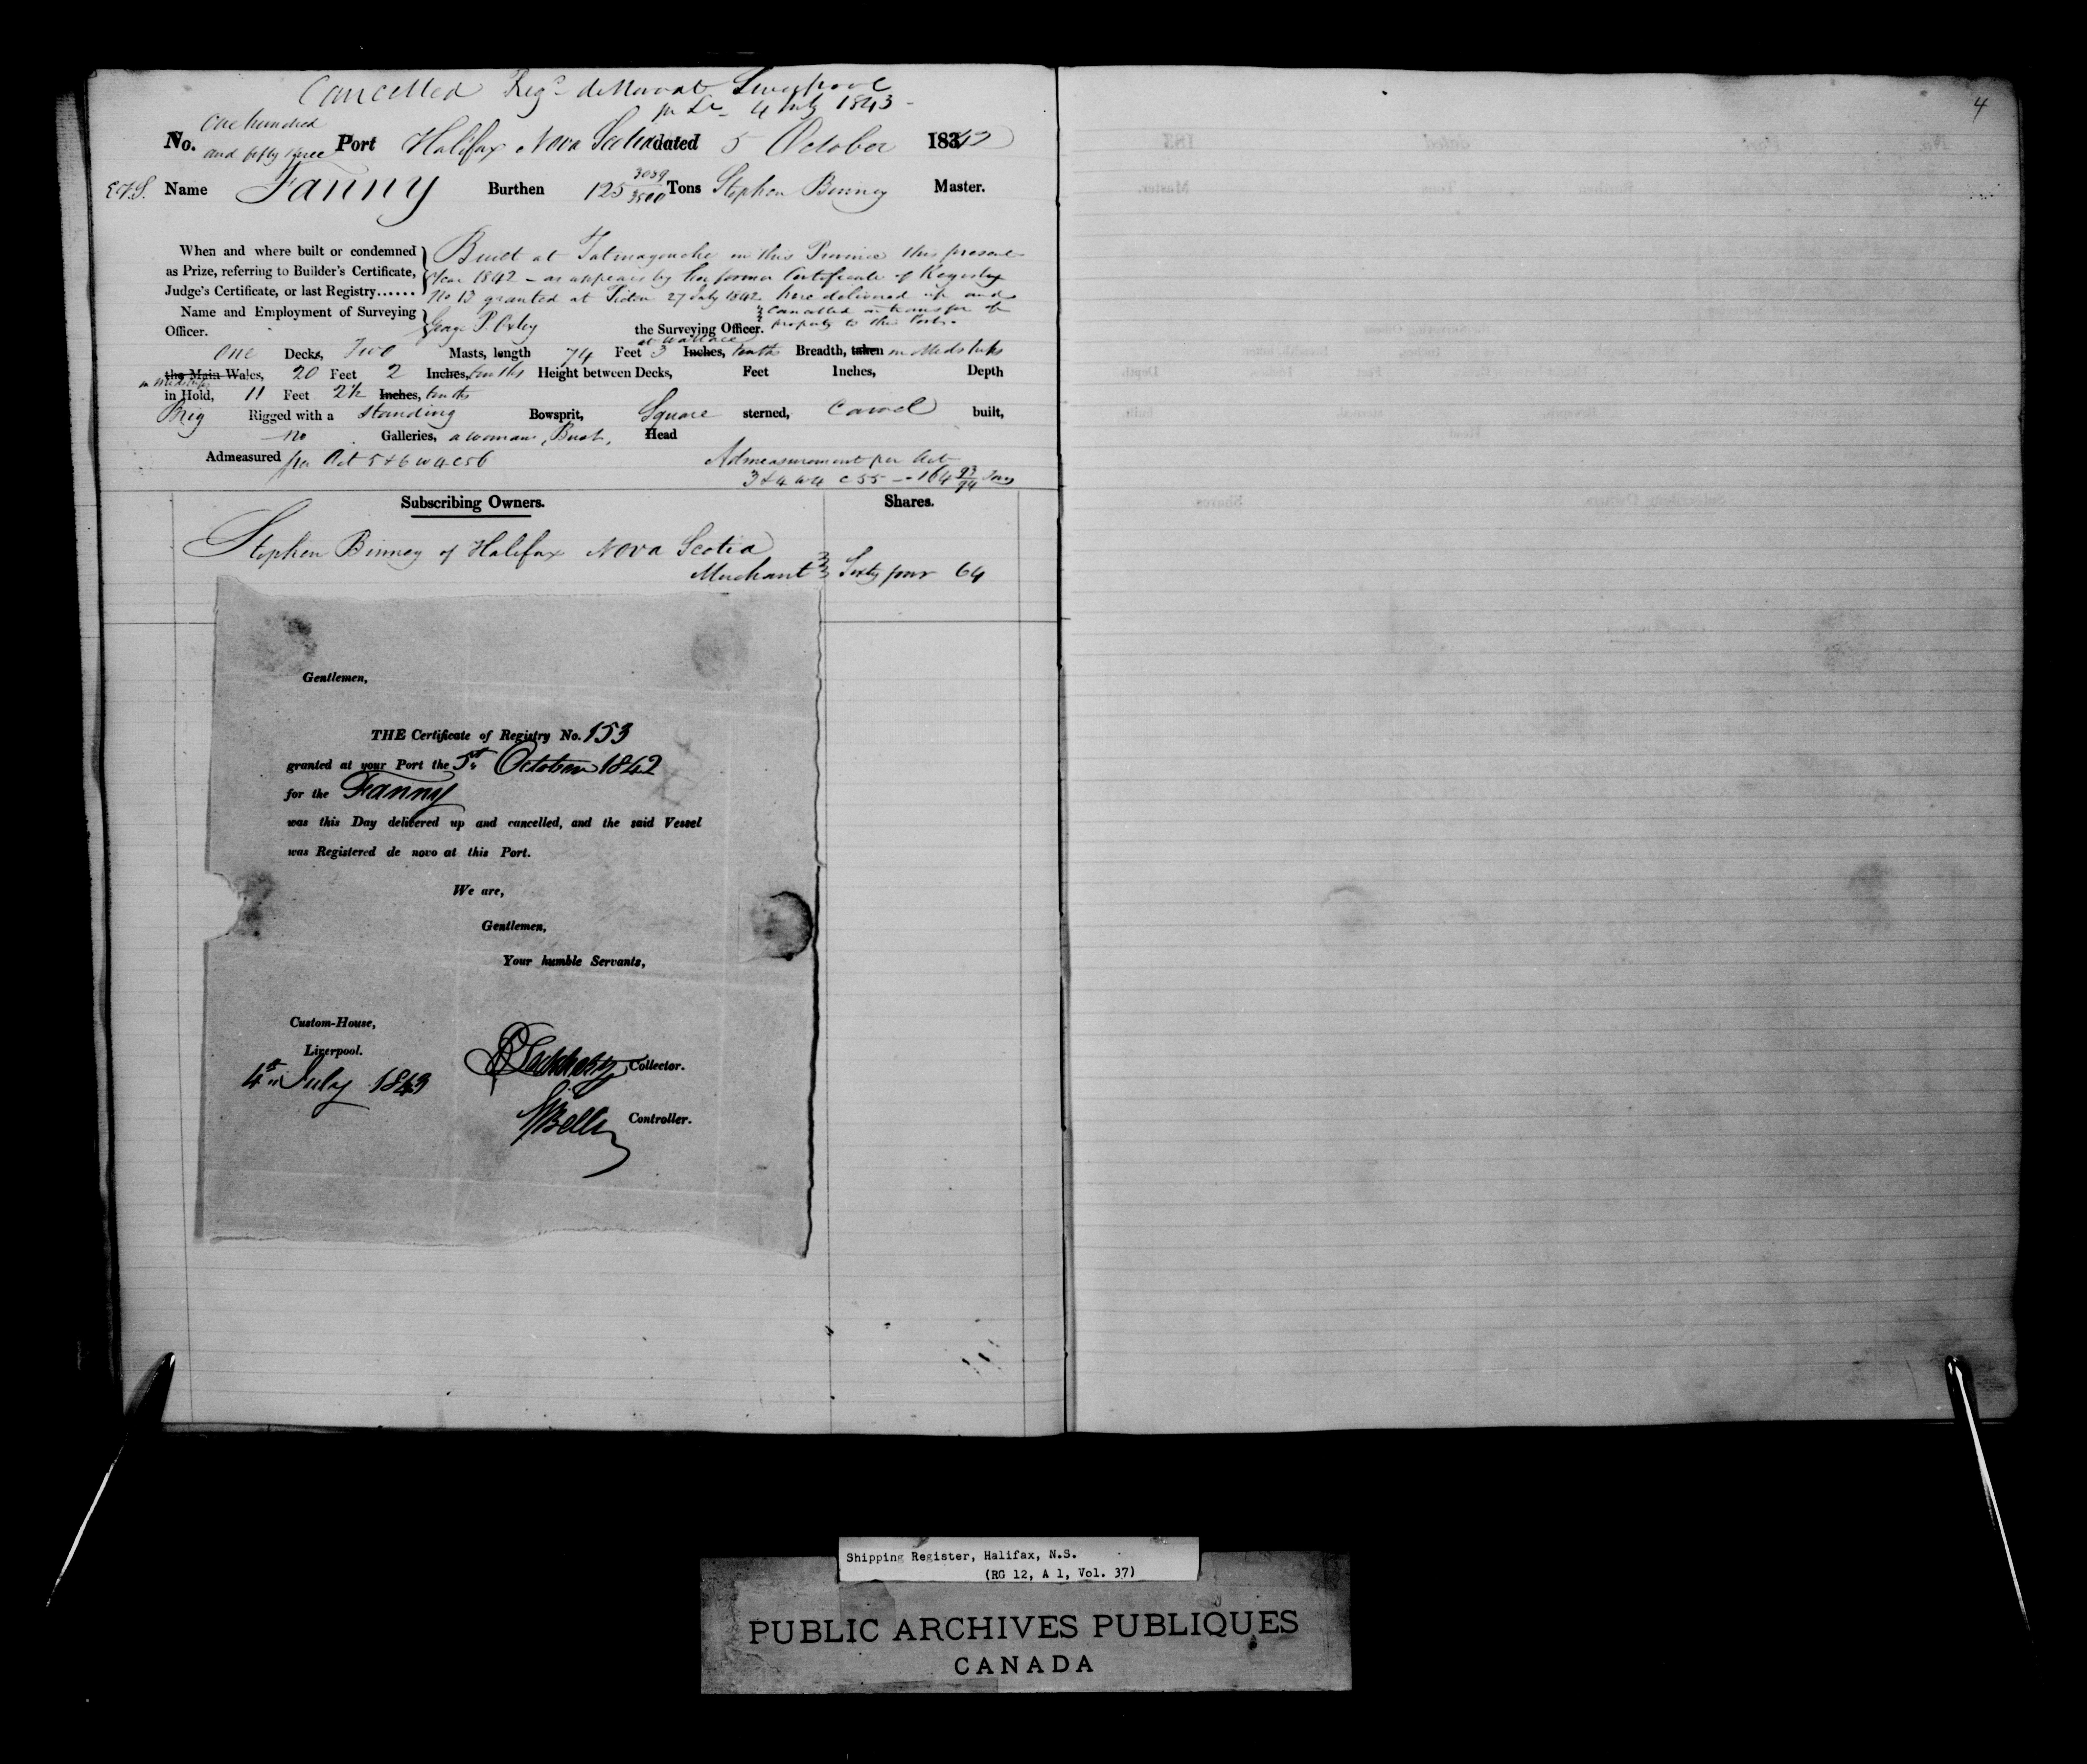 Cancelled Reg.d de Novo at Liverpool
pr Lr 4 July 1843
4
One hundred
No. and fifty three Port Halifax Nova Scotia dated 5 October 1842
Name Fanny Burthen 125 3039/3500 Tons Stephen Binney Master.
When and where built or condemned
as Prize, referring to Builder's Certificate,
Judge's Certificate, or last Registry......
Built at Tatmagouche in this Province this present
Year 1842 - as appears by her former Certificate of Registry
No 13 granted at Pictou 27 July 1842 here delivered up and
cancelled on transfer of
property to this Port.
Name and Employment of Surveying
Officer.
George P. Oxley the Surveying Officer.
at Wallace
One Decks, Two Masts, length 74 Feet 3 Inches, tenths Breadth, taken in Midships
the Main Wales, 20 Feet 2 Inches, tenths Height between Decks, Feet Inches, Depth
in Midships
in Hold, 11 Feet 2½ Inches, tenths
Brig Rigged with a standing Bowsprit, Square sterned, Carvel built,
no Galleries, a womans Bust, Head
Admeasured per Act 5 & 6 W 4 C 56
Admeasurement per Act
3 & 4 W 4 C 55 - 164 93/94 Tons
Subscribing Owners. Shares.
Stephen Binney of Halifax Nova Scotia
Merchant Sixty four 64
Gentlemen,
THE Certificate of Registry No. 153
granted at your Port the 5th October 1842
for the Fanny
was this Day delivered up and cancelled, and the said Vessel
was Registered de novo at this Port.
We are,
Gentlemen,
Your humble Servants,
Custom-House,
Liverpool.
4th July 1843
Collector.
Controller.
Shipping Register, Halifax, N.S.
(RG 12, A 1, Vol. 37)
PUBLIC ARCHIVES PUBLIQUES
CANADA